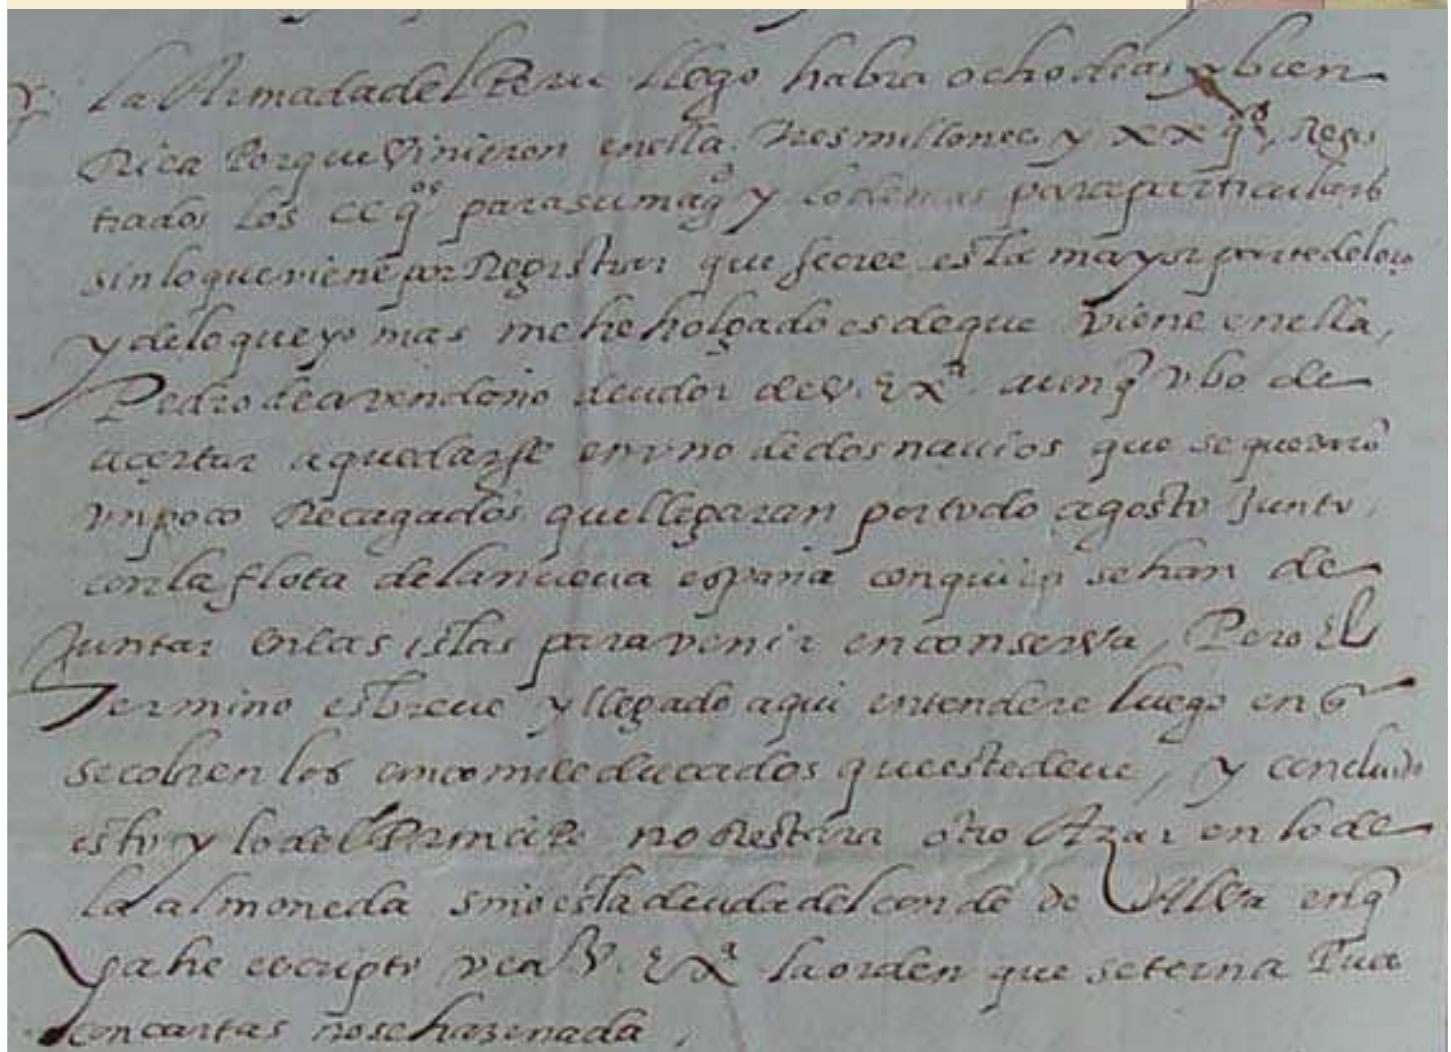 La Armada del Peru llego habra ocho dias y bien
Rica Porque Vinieron en ella. tres millones y xx q.os Regis
trados los cc q.os para su mag.d y lo demas para particulares
sin lo que viene por Registrar que se cree es la mayor parte del oro
y de lo que yo mas me he holgado es de que Viene en ella,
Pedro de avendaño deudor de V. Ex.a aunq vbo de
acertar a quedarse en vno de dos nauios que se quedarō
vn poco Recagados que llegaran por todo agosto Junto
con la flota de la nueua españa con quien se han de
Juntar en las islas para venir en conserva, Pero El
Termino es breue y llegado aqui entendere luego en q̄
se cobren los cinco mill ducados que este deue, y concluido
esto y lo del Principe no Restara otro Azar en lo de
la almoneda sino esta deuda del conde de Alva en q̄
ya he escripto vea V. Ex.a la orden que se terna Pues
con cartas no se haze nada,